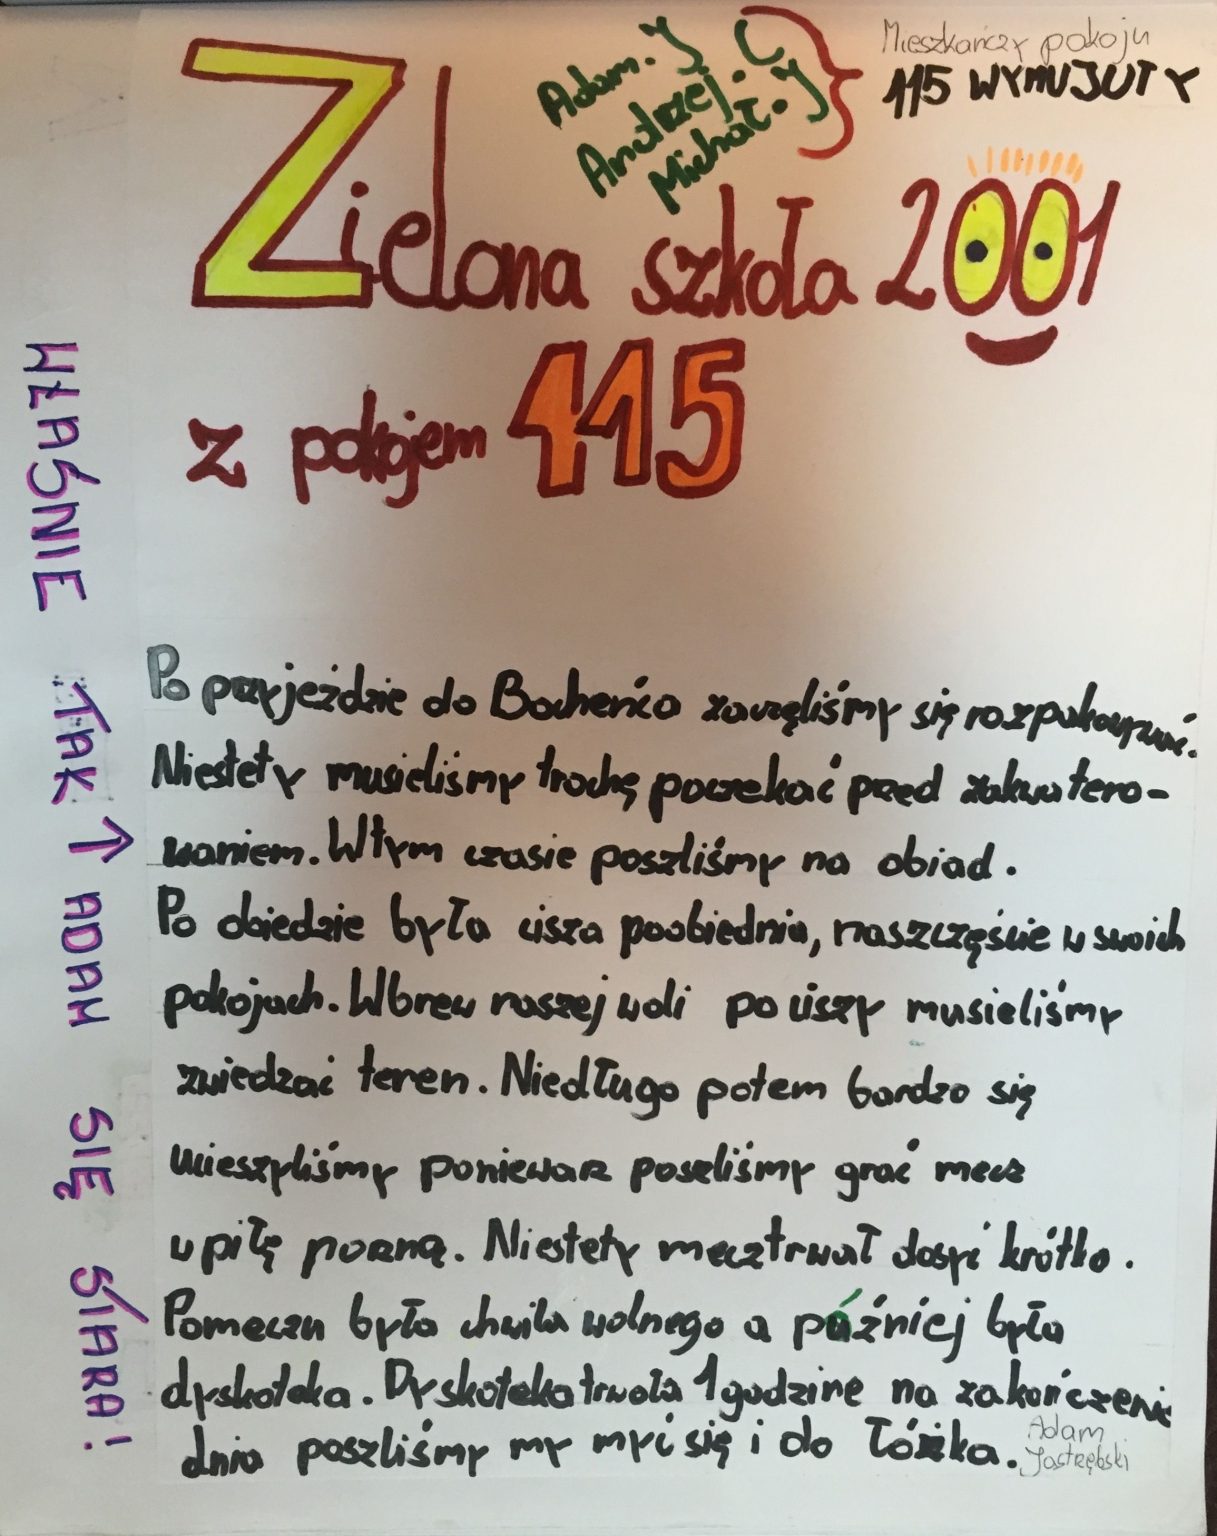 Adam. Y
Andrzej. C
Michał. Y
Mieszkańczy pokoju
115 WYMUJUTY
Zielona szkoła 2001
z pokojem 115
WŁAŚNIE TAK ↑ ADAM SIĘ STARA!
Po przyjeździe do Bocheńca zaczęliśmy się rozpakowywać.
Niestety musieliśmy trochę poczekać przed zakwatero-
waniem. Wtym czasie poszliśmy na obiad.
Po obiedzie była cisza poobiednia, naszczęście w swoich
pokojach. Wbrew naszej woli po ciszy musieliśmy
zwiedzać teren. Niedługo potem bardzo się
ucieszyliśmy poniewarz poszliśmy grać mecz
w piłę norzną. Niestety mecz trwał dosyć krótko.
Pomeczu była chwila wolnego a później była
dyskoteka. Dyskoteka trwała 1 godzine na zakończenie
dnia poszliśmy my myć się i do łóżka.
Adam
Jastrzębski